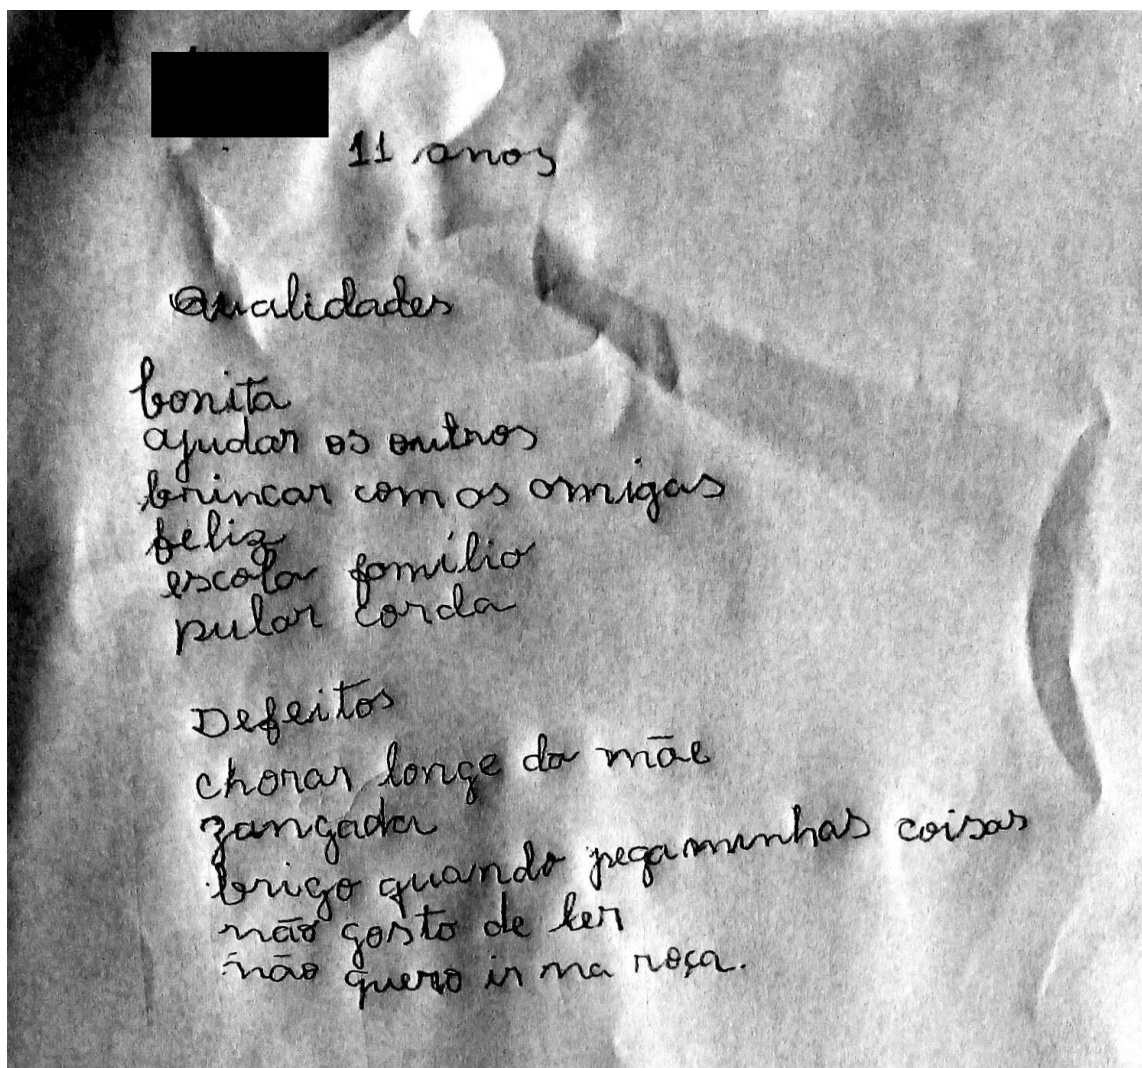 11 anos
Qualidades
bonita
ajudar os outros
brincar com as amigas
feliz
escola família
pular corda
Defeitos
chorar longe da mãe
zangada
brigo quando pega minhas coisas
não gosto de ler
não quero ir na roça.